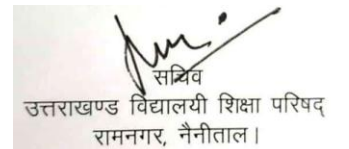 सचिव
उत्तराखण्ड विद्यालयी शिक्षा परिषद्
रामनगर, नैनीताल।